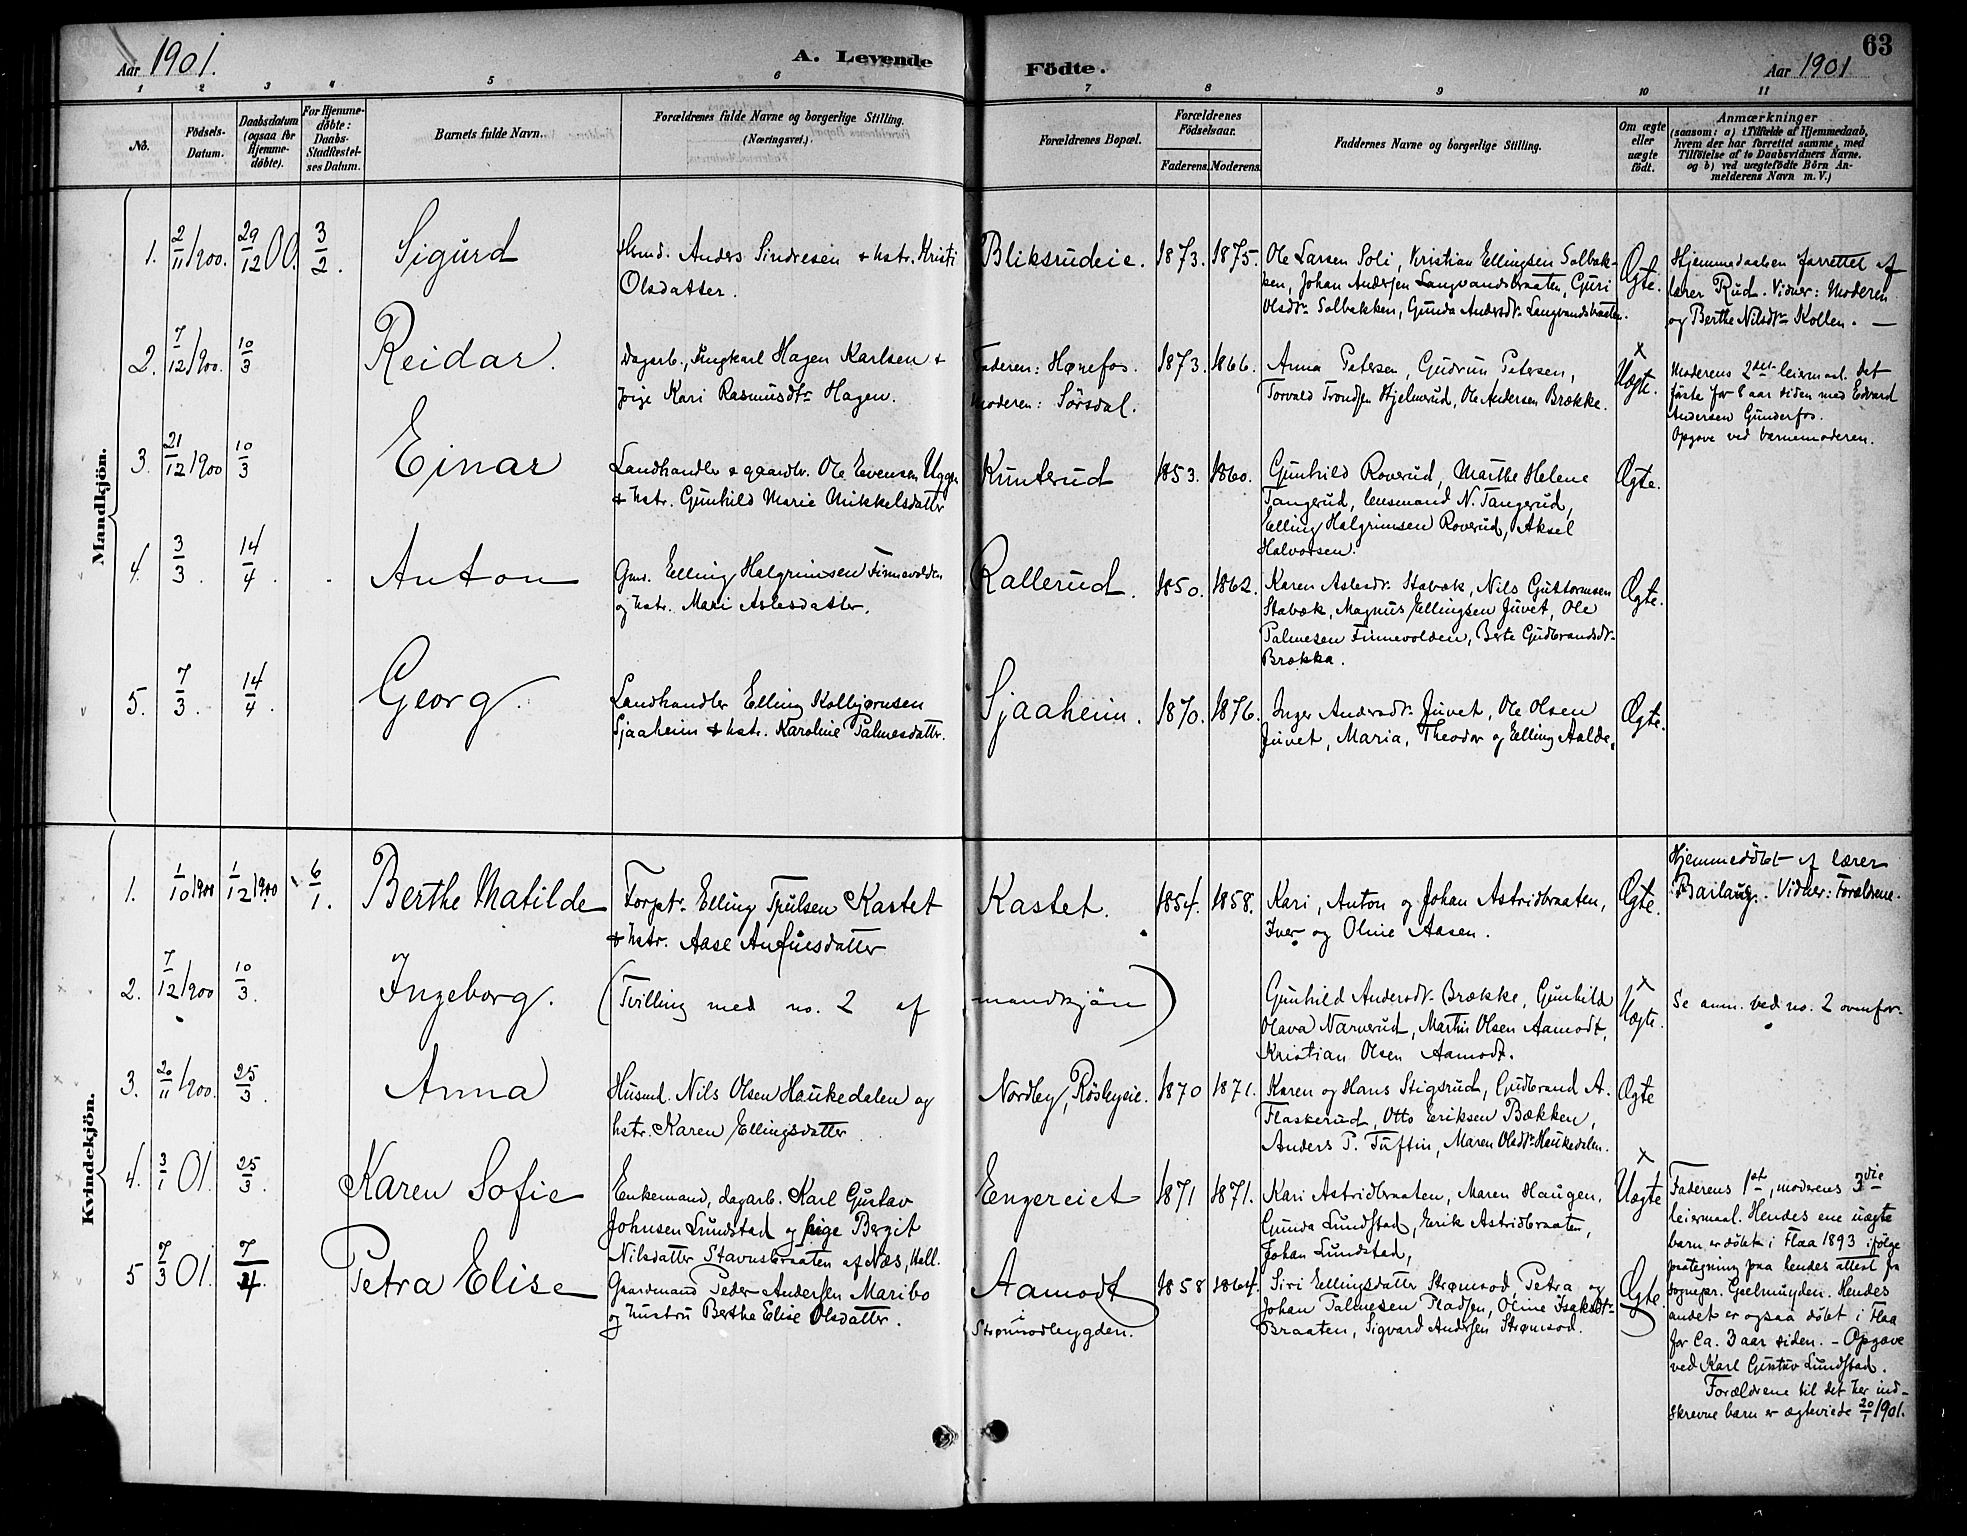 Aar 1901.
A. Levende
Födte.
63
Aar 1901
1 2 3 4 5 6 7 8 9 10 11
No.
Födsels-
Datum.
Daabsdatum
(ogsaa for
Hjemme-
döbte).
For Hjemme-
döbte:
Daabs-
Stadfæstel-
ses Datum.
Barnets fulde Navn.
Forældrenes fulde Navne og borgerlige Stilling.
(Næringsvei.)
Forældrenes Bopæl.
Forældrenes
Födselsaar.
Faderens.
Moderens.
Faddernes Navne og borgerlige Stilling.
Om ægte
eller
uægte
födt.
Anmærkninger
(saasom: a) i Tilfælde af Hjemmedaab,
hvem der har forrettet samme, med
Tilföielse af to Daabsvidners Navne.
og b) ved uægtefödte Börn An-
melderens Navn m. V.)
Mandkjön.
1. 2/11 1900. 29/12 00. 3/2. Sigurd
Husmd. Anders Sindresen & hstr. Kristi
Olsdatter.
Bliksrudeie. 1873. 1875.
Ole Larsen Soli, Kristian Ellingsen Solbak-
ken, Johan Andersen Langvandsbraaten, Guri
Olsdtr. Solbakken, Gunda Andersdtr. Langvandsbraaten.
Ægte.
Hjemmedaaben forrettet af
lærer Rud. Vidner: Moderen
og Berthe Nilsdtr. Kollen. —
2. 7/12 1900. 10/3 Reidar.
Dagarb., Ungkarl Hagen Karlsen &
pige Kari Rasmusdtr. Hagen.
Faderen: Hønefos.
Moderen: Sörsdal.
1873. 1866.
Anna Petersen, Gudrun Petersen,
Torvald Trondsen Hjelmerud, Ole Andersen Brække.
x
Uægte.
Moderens 2det leiermaal. Det
förste for 8 aar siden med Edvard
Andersen Gunderfos.
Opgave ved barnemoderen.
3. 21/12 1900 10/3 Einar
Landhandler & gaardbr. Ole Evensen Uggen
& hstr. Gunhild Marie Mikkelsdatter
Kunterud 1853. 1860.
Gunhild Roverud, Marthe Helene
Tangerud, lensmand N. Tangerud,
Elling Halgrimsen Roverud, Aksel
Halvorsen.
Ægte.
4. 3/3. 14/4. Anton
Gmd. Elling Halgrimsen Finnevolden
og hstr. Mari Aslesdatter.
Rallerud. 1850. 1862.
Karen Aslesdtr. Stabæk, Nils Guttormsen
Stabæk, Magnus Ellingsen Juvet, Ole
Palmesen Finnevolden, Berte Gudbrandsdtr.
Brækka.
Ægte.
5. 7/3. 14/4. Georg.
Landhandler Elling Kolbjørnsen
Sjaaheim & hstr. Karoline Palmesdattr.
Sjaaheim. 1870. 1876.
Inger Andersdtr. Juvet, Ole Olsen
Juvet, Maria, Theodor og Elling Aalde.
Ægte.
Kvindekjön.
1. 1/10 1900 1/12 1900 6/1. Berthe Matilde
Forptr. Elling Trulsen Kastet
& hstr. Aase Anfinsdatter
Kastet. 1854. 1858.
Kari, Anton og Johan Astridbraaten,
Iver og Oline Aasen.
Ægte.
Hjemmedöbt af lærer
Bailaug. Vidner: Forældrene.
2. 7/12 1900 10/3. Ingeborg.
(Tvilling med no. 2 af mandkjön)
Gunhild Andersdtr. Brække, Gunhild
Olava Narverud, Martin Olsen Aamodt,
Kristian Olsen Aamodt.
x
Uægte.
Se anm. ved no. 2 ovenfor.
3. 20/11 1900. 25/3. Anna
Husmd. Nils Olsen Haukedalen og
hstr. Karen Ellingsdatter.
Nordby, Rösbyeie. 1870 1871.
Karen og Hans Stigsrud, Gudbrand A.
Flaskerud, Otto Eriksen Bækken,
Anders P. Tuftin, Maren Olsdtr. Haukedalen.
Ægte
4. 3/1 01. 25/3. Karen Sofie
Enkemand, dagarb. Karl Gustav
Johnsen Lundstad og pige Bergit
Nilsdatter Stavnsbraaten af Næs, Hall.
Engereiet 1871 1871.
Kari Astridbraaten, Maren Haugen,
Gunda Lundstad, Erik Astridbraaten,
Johan Lundstad,
x
Uægte
Faderens 1ste, moderens 3die
leiermaal. Hendes ene uægte
barn er döbt i Flaa 1893 ifölge
paategning paa hendes attest fra
sognepr. Gjelmuyden. Hendes
andet er ogsaa döbt i Flaa
for ca. 3 aar siden. – Opgave
ved Karl Gustav Lundstad.
Forældrene til det her ind-
skrevne barn er ægteviede 20/1 1901.
5 7/3 01. 7/4. Petra Elise
Gaardmand Peder Andersen Maribo
og hustru Berthe Elise Olsdatter.
Aamodt
i
Strømsodbygden.
1858 1864.
Siri Ellingsdatter Strømsod, Petra og
Johan Palmesen Pladsen, Oline Isaksdtr.
Braaten, Sigvard Andersen Strømsod.
Ægte.